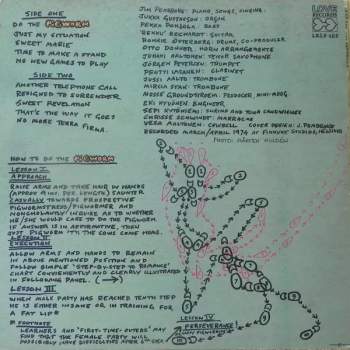 SIDE ONE
DO THE PIGWORM
JUST MY SITUATION
SWEET MARIE
TIME TO MAKE A STAND
NO NEW GAMES TO PLAY
SIDE TWO
ANOTHER TELEPHONE CALL
RESIGNED TO SURRENDER
SWEET REVELATION
THAT'S THE WAY IT GOES
NO MORE TERRA FIRMA.
JIM PEMBROKE: PIANO, SONGS, SINGING.
JUKKA GUSTAVSON: ORGAN
PEKKA POHJOLA: BASS
"PEKKU" RECHARDT: GUITAR,
RONNIE ÖSTERBERG: DRUMS, CO-PRODUCER
OTTO DONNER: HORN ARRANGEMENTS
JUHANI AALTONEN: TENOR SAXOPHONE
JÖRGEN PETERSEN: TRUMPET
PENTTI LASANEN: CLARINET
JUSSI AALTO TROMBONE
MIRCIA STAN: TROMBONE
MOSSE GROUNDSTROEM: PRODUCER, MINI-MOOG,
EKI
CHRISSE SCHWINDT: MARACAS
VESA AALTONEN: COWBELL COVER DESIGN: J. PEMBROKE
RECORDED MARCH/APRIL 1974 AT FINNVOX STUDIOS, HELSINKI
PHOTO: MÅRTEN HULDÉN
LOVE
RECORDS
LRLP
HOW TO DO THE PIGWORM
LESSON I
APPROACH
RAISE ARMS AND TAKE HAIR IN HANDS
(APPROX 9 INS. PER. LENGTH) SAUNTER
CASUALLY TOWARDS PROSPECTIVE
PIGWORMSTRESS/PIGWORMER AND
NONCHALANTLY INQUIRE AS TO WHETHER
HE/SHE WOULD CARE TO DO THE PIGWORM.
IF ANSWER IS IN AFFIRMATIVE, THEN
LESSON II
EXECUTION
ALLOW ARMS AND HANDS TO REMAIN
IN ABOVE MENTIONED POSITION AND
FOLLOW SIMPLE 'STEP-BY-STEP TO ROMANCE'
CHART CONVENIENTLY AND CLEARLY ILLUSTRATED
IN FOLLOWING PANEL.
LESSON III
WHEN MALE PARTY HAS REACHED TENTH STEP
HE IS EITHER INSANE OR IN TRAINING FOR
A FAT LIP*
* FOOTNOTE
LEARNERS AND 'FIRST TIME-OUTERS' MAY
FIND THAT THE FEMALE PARTY WILL
POSSIBLY HAVE DIFFICULTIES AFTER 6TH STEP.
LESSON IV
PERSEVERANCE